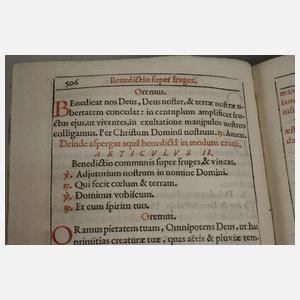 506 Benedictio super fruges.
Oremus.
Benedicat nos Deus, Deus noster, & terræ nostræ u-
bertatem concedat: in centuplum amplificet fru-
ctus ejus, ut viventes, in exultatione manipulos nostros
colligamus. Per Christum Dominũ nostrum. ℟. Amen.
Deinde aspergat aqua benedicta in modum crucis.
ARTICULUS II.
Benedictio communis super fruges, & vineas.
℣. Adjutorium nostrum in nomine Domini.
℟. Qui fecit cœlum & terram.
℣. Dominus vobiscum.
℟. Et cum spiritu tuo.
Oremus.
Oramus pietatem tuam, Omnipotens Deus, ut has
primitias creaturæ tuæ, quas aëris & pluviæ tem-